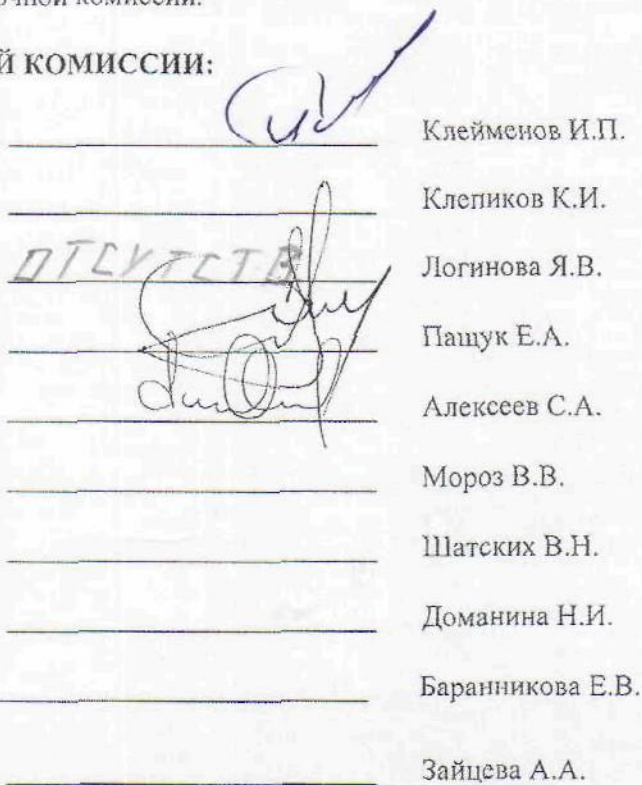 комиссии.
Й КОМИССИИ:
Клейменов И.П.
Клепиков К.И.
ОТСУТСТВ Логинова Я.В.
Пащук Е.А.
Алексеев С.А.
Мороз В.В.
Шатских В.Н.
Доманина Н.И.
Баранникова Е.В.
Зайцева А.А.